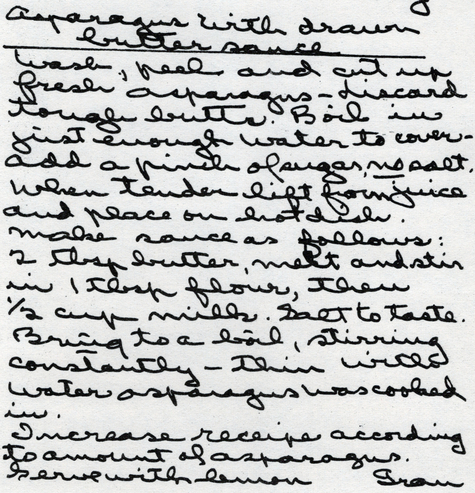 asparagus with drawn
butter sauce
Wash, peel and cut up
fresh asparagus - discard
tough butts. Boil in
just enough water to cover -
add a pinch of sugar, no salt.
When tender lift form juice
and place on hot dish.
Make sauce as follows:
2 tbsp butter, melt and stir
in 1 tbsp flour, then
1/2 cup milk. Salt to taste.
Bring to a boil, stirring
constantly - thin with
water asparagus was cooked
in.
Increase receipe according
to amount of asparagus.
Serve with lemon